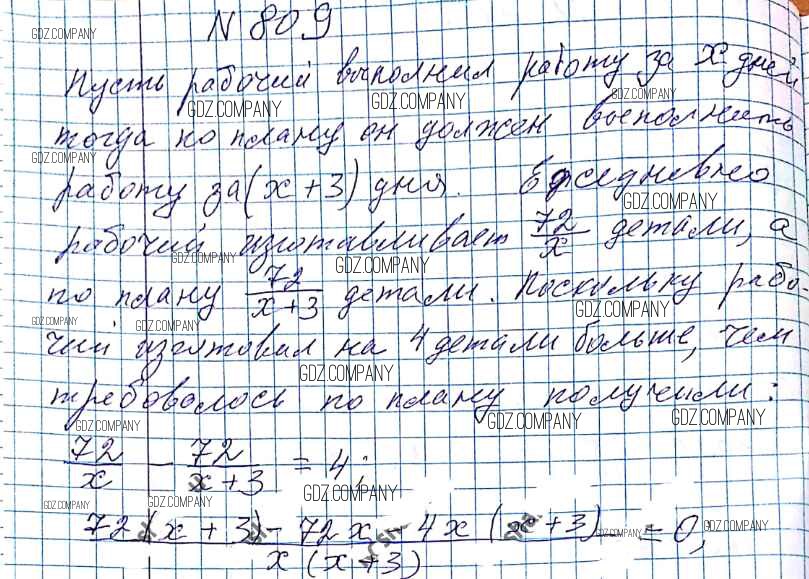 N 809
Пусть рабочий выполнил работу за x дней
тогда по плану он должен выполнить
работу за (x+3) дня. Ежедневно
рабочий изготавливает 72/x детали, а
по плану 72/(x+3) детали. Поскольку рабо-
чий изготовил на 4 детали больше, чем
требовалось по плану получили:
72/x - 72/(x+3) = 4;
(72(x+3) - 72x - 4x(x+3))/(x(x+3)) = 0;
GDZ.COMPANY